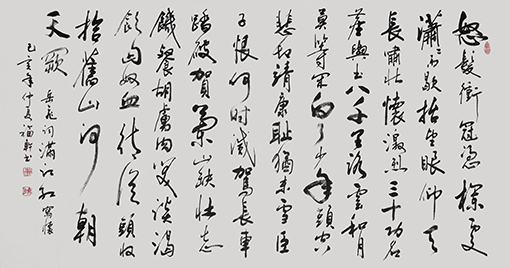 怒髮衝冠憑欄處
瀟々雨歇抬望眼仰天
長嘯壯懷激烈三十功名
塵與土八千里路雲和月
莫等閑白了少年頭空
悲切靖康恥猶未雪臣
子恨何時滅駕長車
踏破賀蘭山缺壯志
饑餐胡虜肉笑談渴
飲匈奴血待從頭收
拾舊山河朝
天闕
岳飛詞滿江紅寫懷
己亥年仲夏福軒書